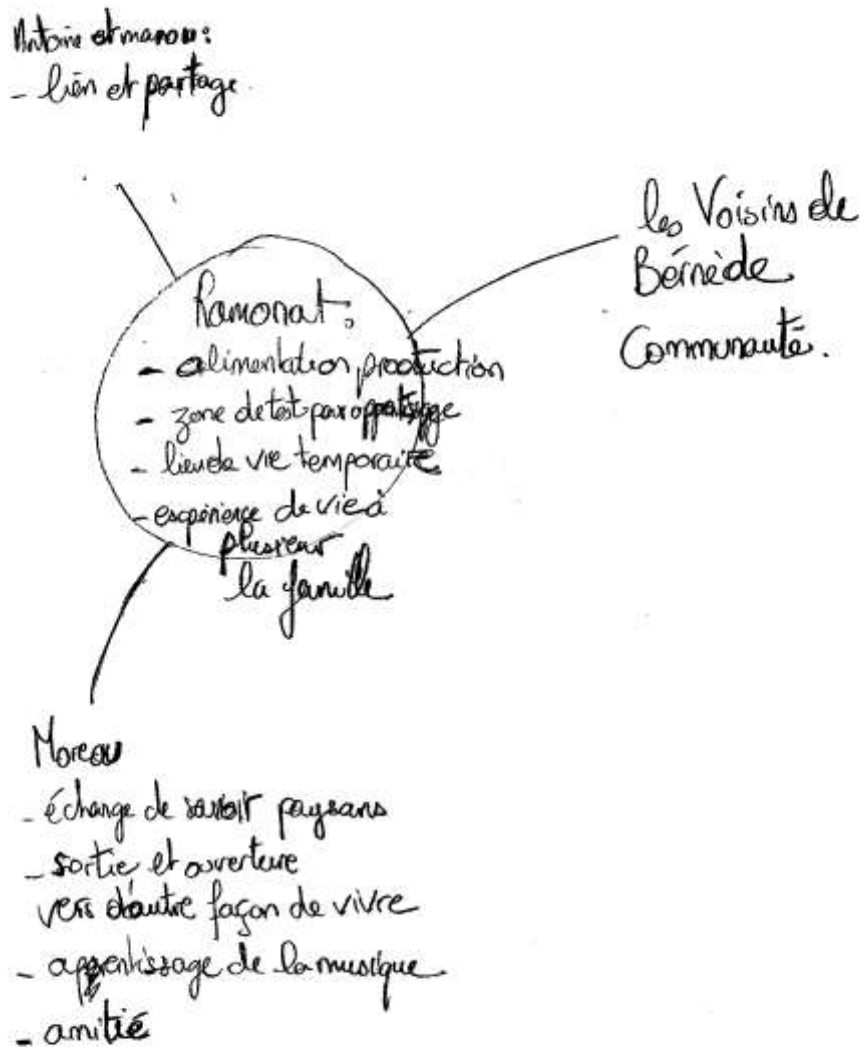 Antoine et manou :
- lien et partage.
les Voisins de
Bernède
Communauté.
Ramonat :
- alimentation, production
- zone de test par apprentissage
- lieu de vie temporaire
- expérience de vie à
plusieur
la famille
Moreau
- échange de savoir paysans
- sortie et ouverture
vers d'autre façon de vivre
- apprentissage de la musique
- amitié